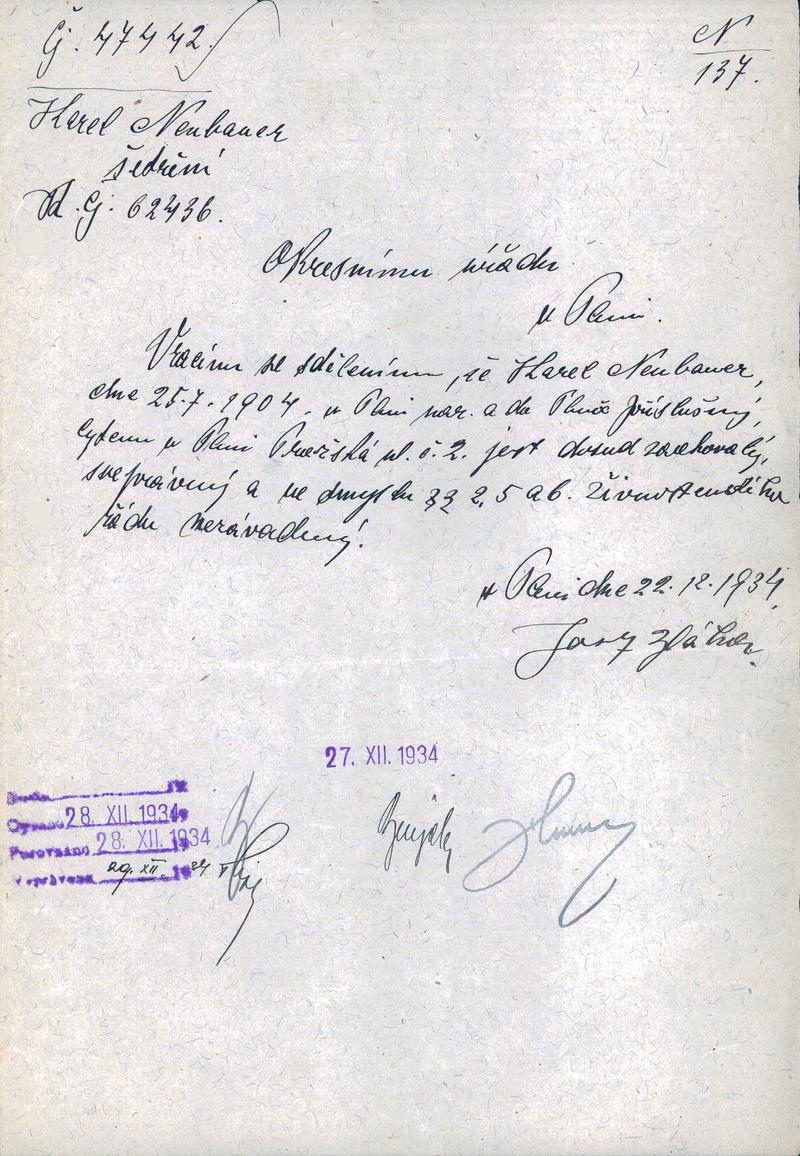 Čj. 47442.
N
137.
Karel Neubauer
šetření
Kd. čj. 62436.
Okresnímu úřadu
v Plzni.
Vracím se sdělením, že Karel Neubauer,
dne 25.7.1904. v Plzni nar. a do Plzně příslušný,
bytem v Plzni Pražská ul. č. 2. jest dosud zachovalý,
svéprávný a ve smyslu §§ 2, 5 a 6. živnostenského
řádu nezávadný.
v Plzni dne 22.12.1934.
Josef
27. XII. 1934
28. XII. 1934
Porovnáno 28. XII. 1934
Vypraveno 29. XII. 34